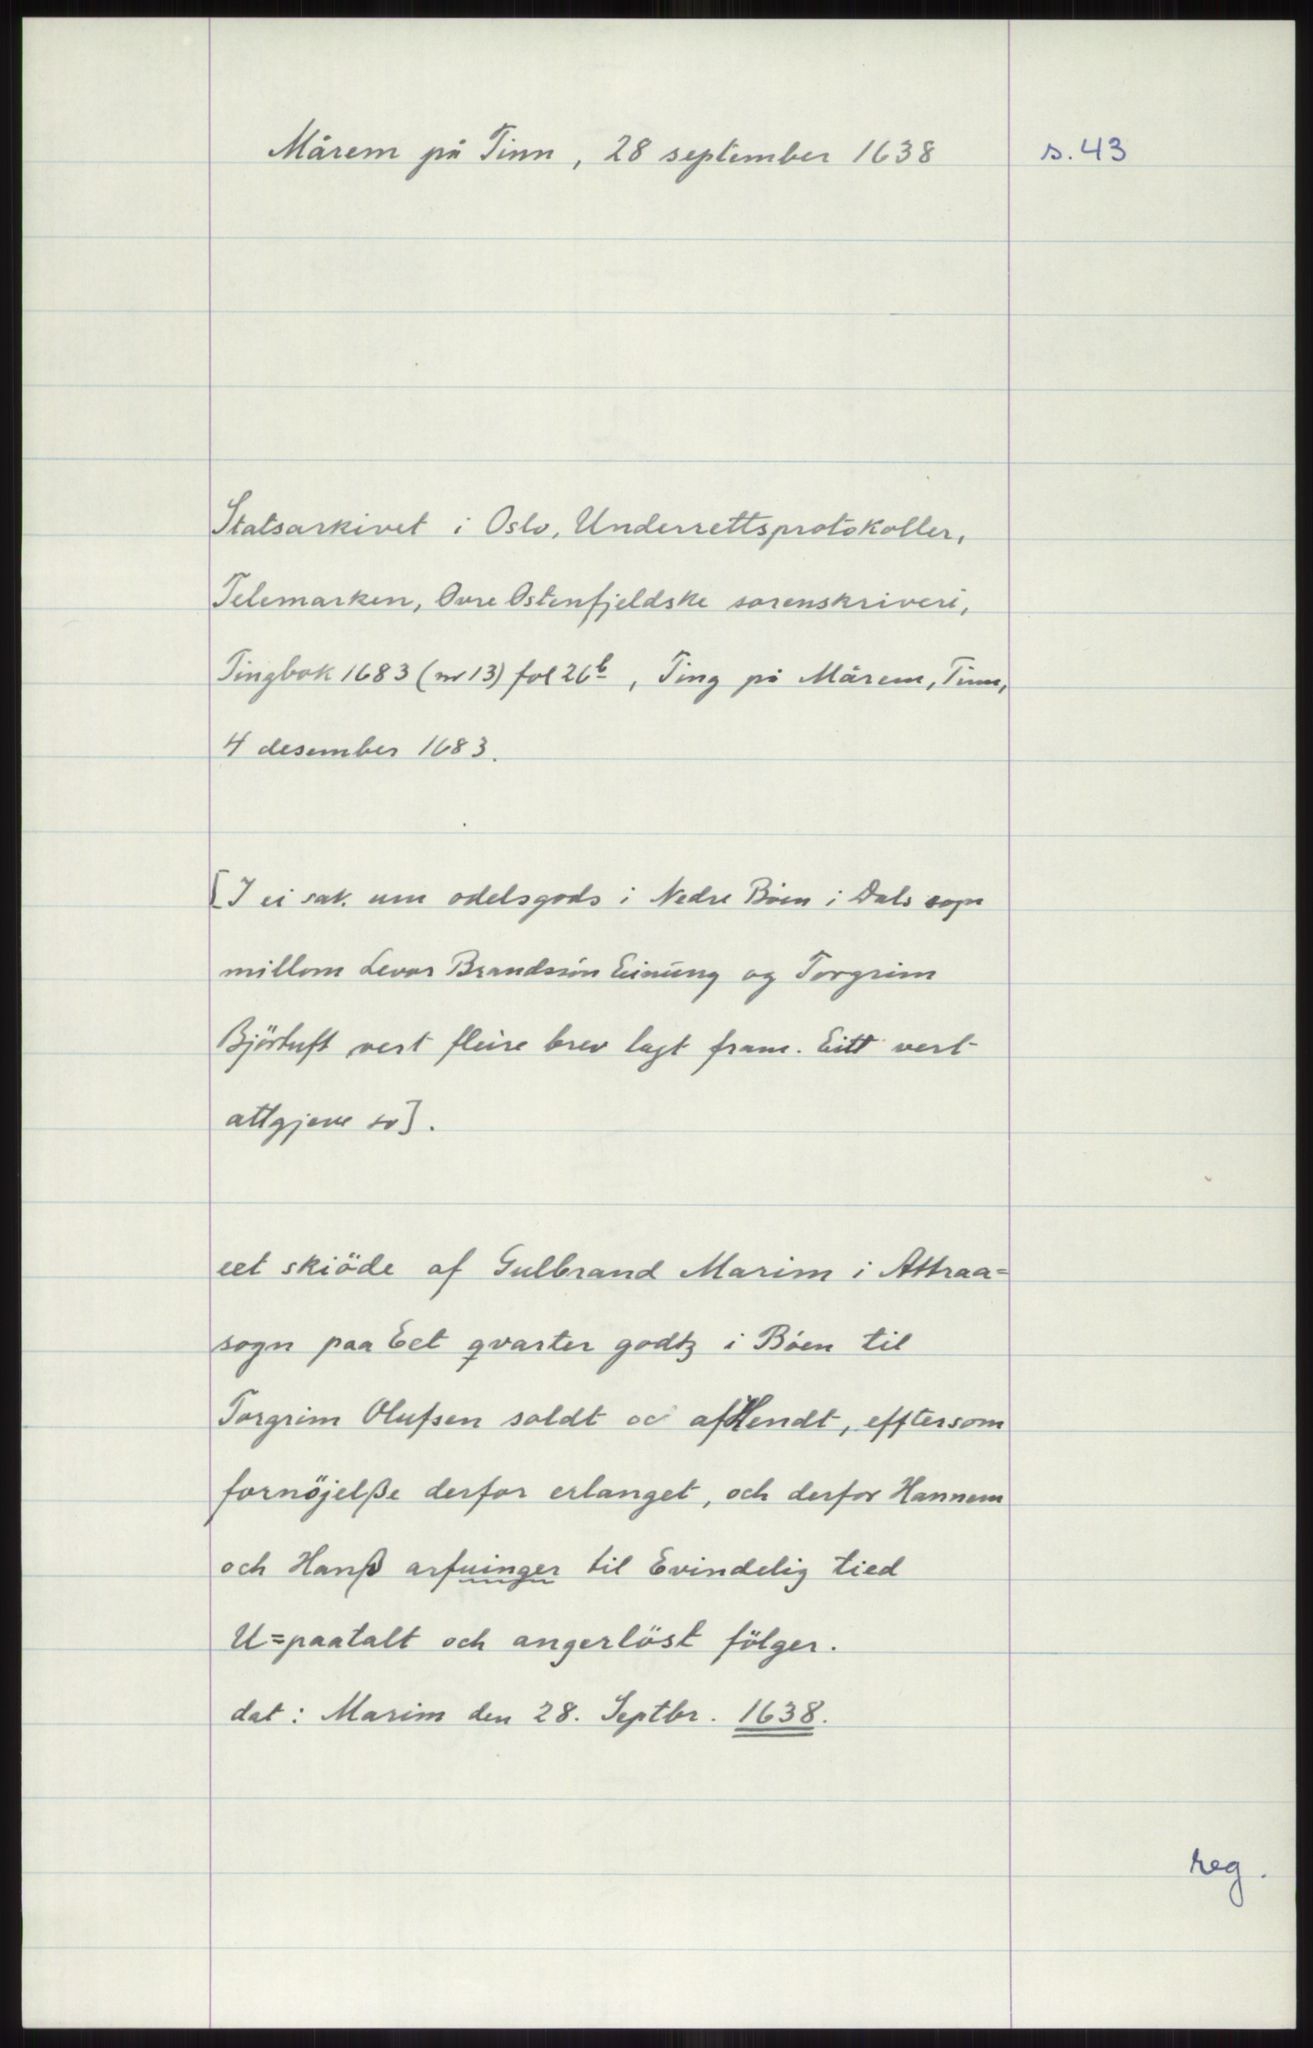 Mårem på Tinn, 28 september 1638
s. 43
Statsarkivet i Oslo, Underrettsprotokoller,
Telemarken, Övre Ostenfjeldske sorenskriveri,
Tingbok 1683 (nr 13) fol 26b, Ting på Mårem, Tinn,
4 desember 1683.
[I ei sak um odelsgods i Nedre Böen i Dals sogn
millom Levor Brandssön Einüng og Torgrim
Björtuft vert fleire brev lagt fram. Eitt vert
attgjeve so].
eet skiöde af Gulbrand Marim i Attraa=
sogn paa Eet qvarter godtz i Böen til
Torgrim Olufsen soldt oc afHendt, efftersom
fornöjelße derfor erlanget, och derfor Hannem
och Hanß arfuinger til Evindelig tied
U=paatalt och angerlöst fölger.
dat: Marim den 28. Septbr. 1638.
reg.